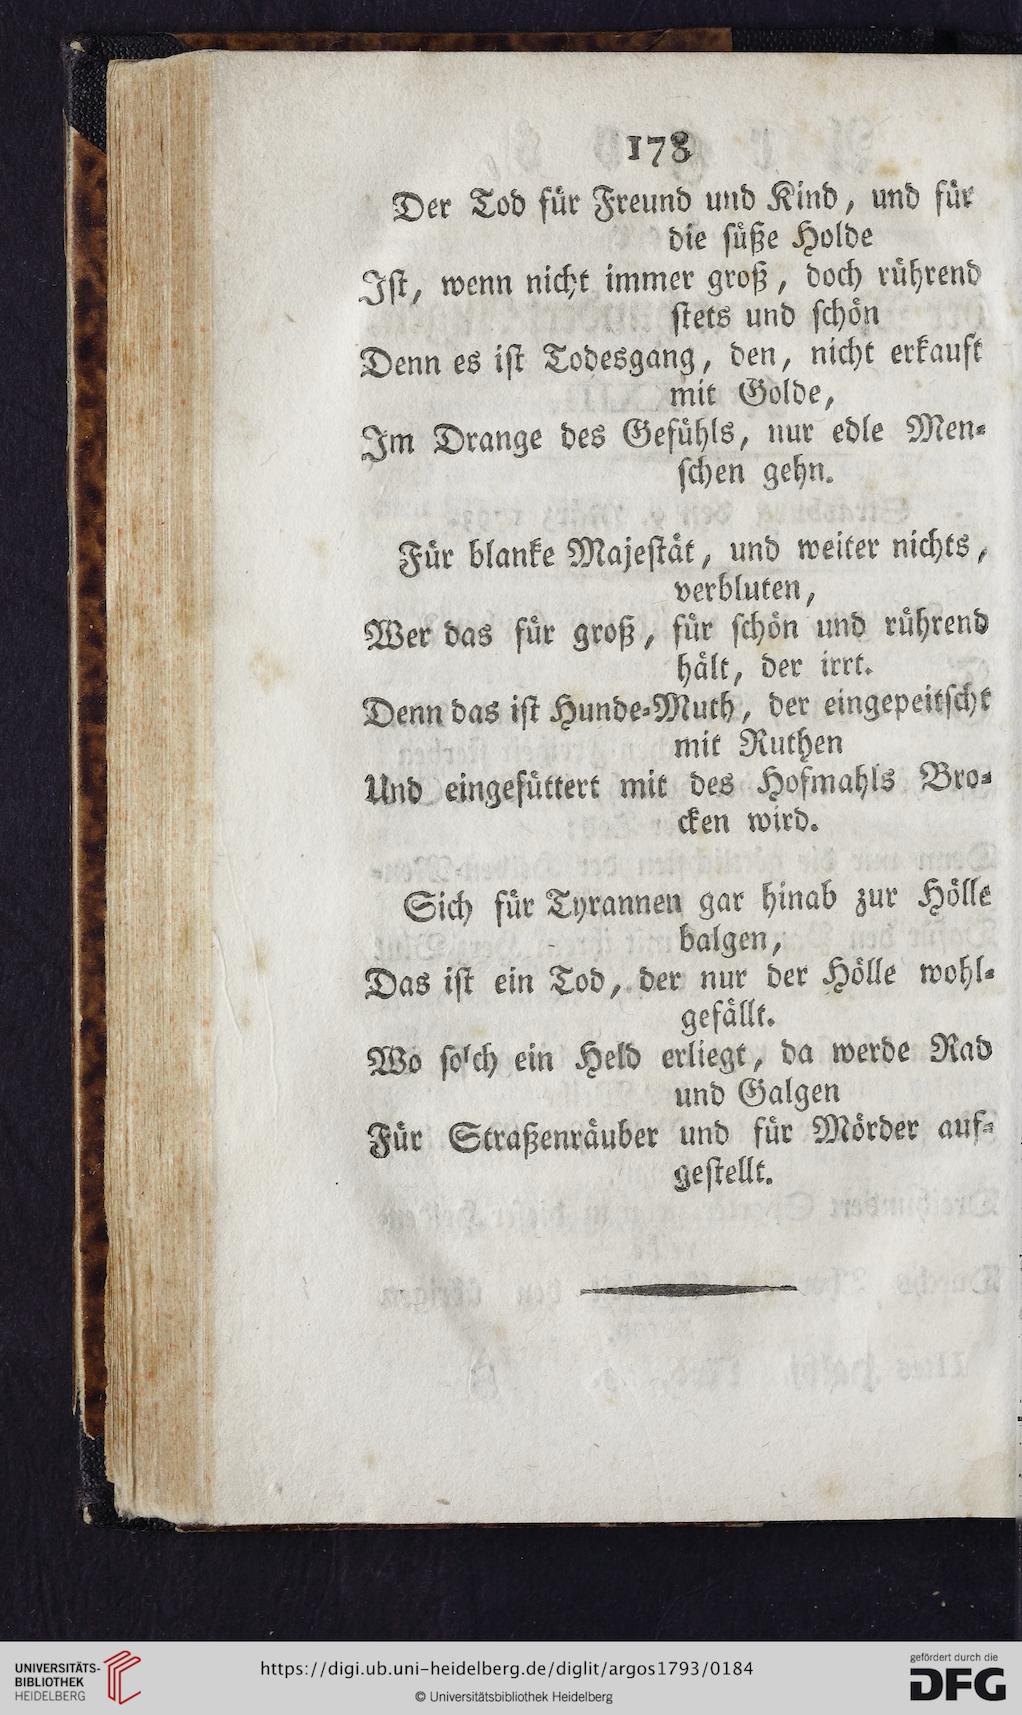 178
Der Tod für Freund und Kind, und für
die süße Holde
Ist, wenn nicht immer groß, doch rührend
stets und schön
Denn es ist Todesgang, den, nicht erkauft
mit Golde,
Im Drange des Gefühls, nur edle Men-
schen gehn.
Für blanke Majestät, und weiter nichts,
verbluten,
Wer das für groß, für schön und rührend
hält, der irrt.
Denn das ist Hunde-Muth, der eingepeitscht
mit Ruthen
Und eingefüttert mit des Hofmahls Bro-
cken wird.
Sich für Tyrannen gar hinab zur Hölle
balgen,
Das ist ein Tod, der nur der Hölle wohl-
gefällt.
Wo solch ein Held erliegt, da werde Rad
und Galgen
Für Straßenräuber und für Mörder auf-
gestellt.
UNIVERSITÄTS-
BIBLIOTHEK
HEIDELBERG
https://digi.ub.uni-heidelberg.de/diglit/argos1793/0184
© Universitätsbibliothek Heidelberg
gefördert durch die
DFG